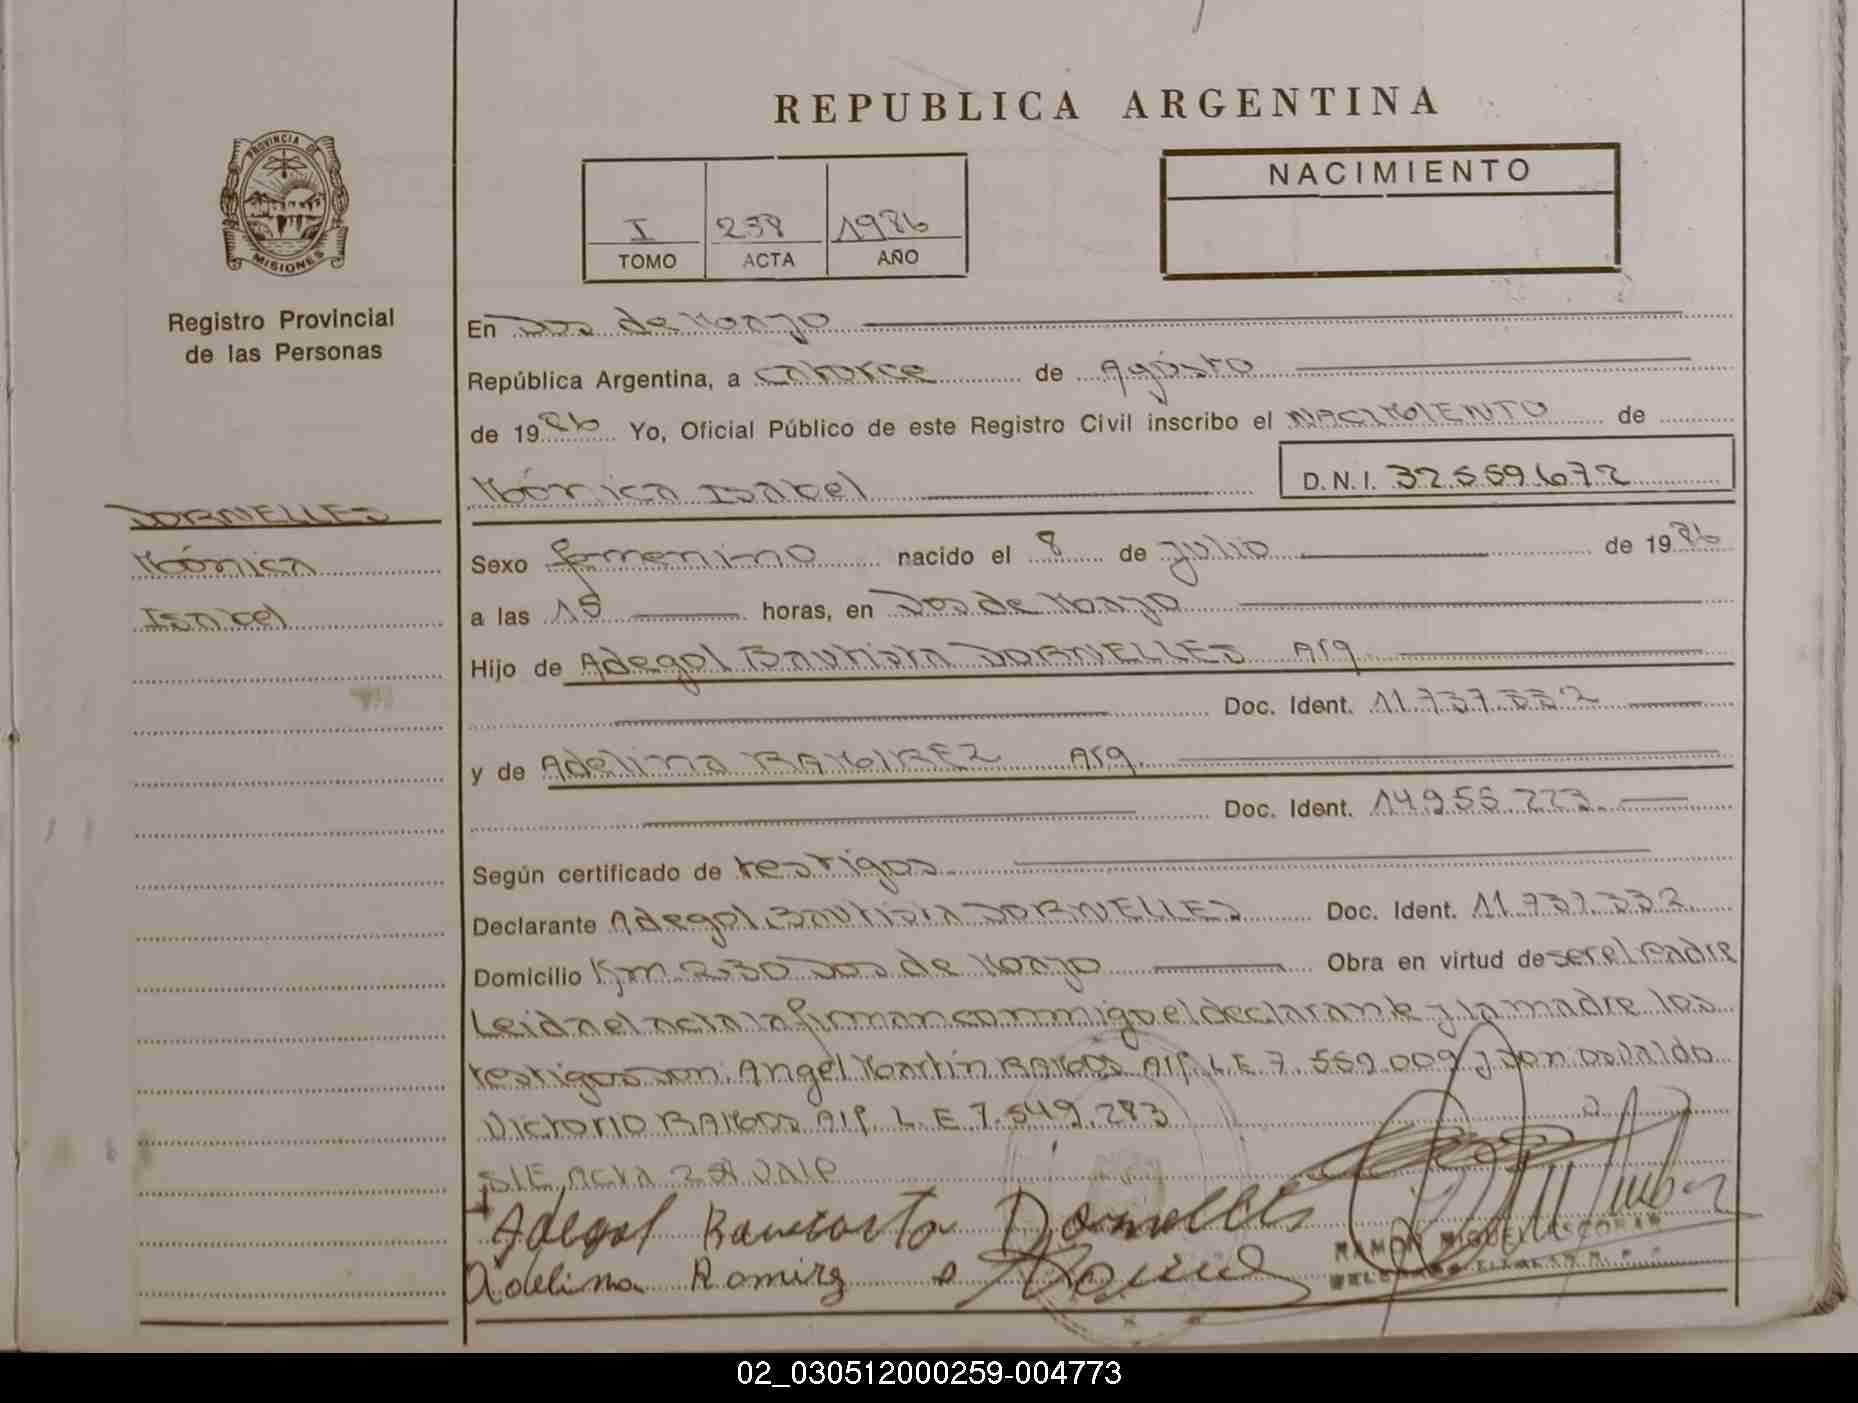 REPUBLICA ARGENTINA
PROVINCIA DE
MISIONES
Registro Provincial
de las Personas
I 238 1986
TOMO ACTA AÑO
NACIMIENTO
En Dos de Mayo
República Argentina, a catorce de Agosto
de 1986 Yo, Oficial Público de este Registro Civil inscribo el NACIMIENTO de
Mónica Isabel D.N.I. 32.559.672
DORNELLES
Mónica
Isabel
Sexo femenino nacido el 8 de julio de 1986
a las 15 horas, en Dos de Mayo
Hijo de Adegol Bautista DORNELLES Arg
Doc. Ident. 11.737.332
y de Adelina RAMIREZ Arg.
Doc. Ident. 14.955.223
Según certificado de testigos
Declarante Adegol Bautista DORNELLES Doc. Ident. 11.737.332
Domicilio Km 230 Dos de Mayo Obra en virtud de ser el Padre
Leida el acta la firman conmigo el declarante y la madre los
testigos son: Angel Martín RAMOS L.E 7.559.009 y don Osvaldo
Victorio RAMOS L.E 7.549.283
S/E Acta
Adegol Bautista Dornelles
Adelina Ramirez
RAMON MIGUEL
02_030512000259-004773